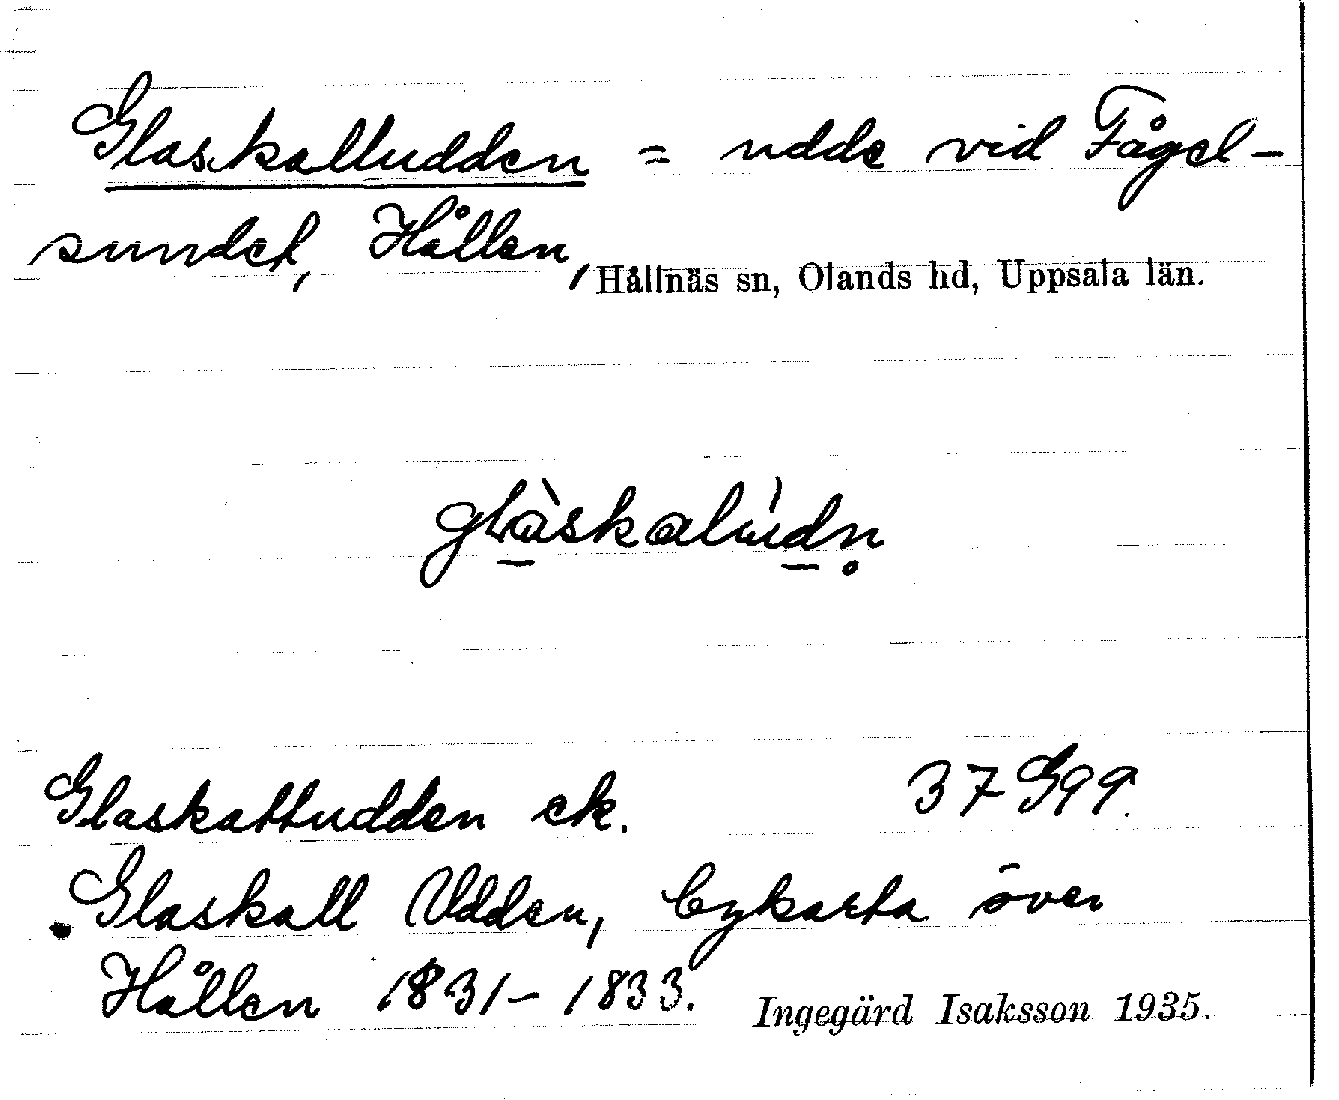 Glaskalludden = udde vid Fågel-
sundet, Hållen, Hållnäs sn, Olands hd, Uppsala län.
glàskalùdn̥
Glaskattudden ek. 37 G99.
Glaskall Udden, bykarta över
Hållen 1831-1833. Ingegärd Isaksson 1935.